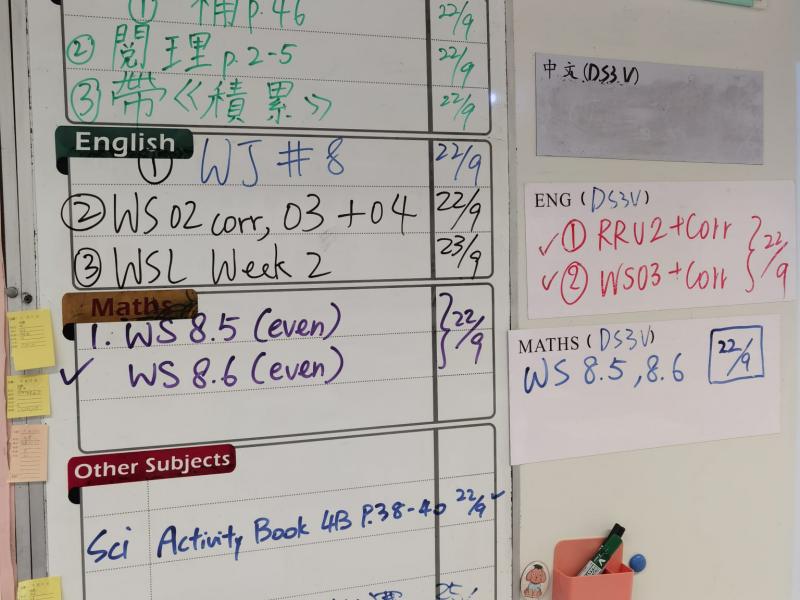 ① 補 p.46 22/9
② 閱理 p.2-5 22/9
③ 帶《積累》 22/9
English
① WJ #8 22/9
② WS 02 corr, 03 + 04 22/9
③ WSL Week 2 23/9
Maths
1. WS 8.5 (even) } 22/9
✓ WS 8.6 (even)
Other Subjects
Sci Activity Book 4B P.38-40 22/9 ✓
25/
中文 (DS3V)
ENG (DS3V)
✓ ① RRU2 + Corr } 22/9
✓ ② WS03 + Corr
MATHS (DS3V)
WS 8.5, 8.6 22/9